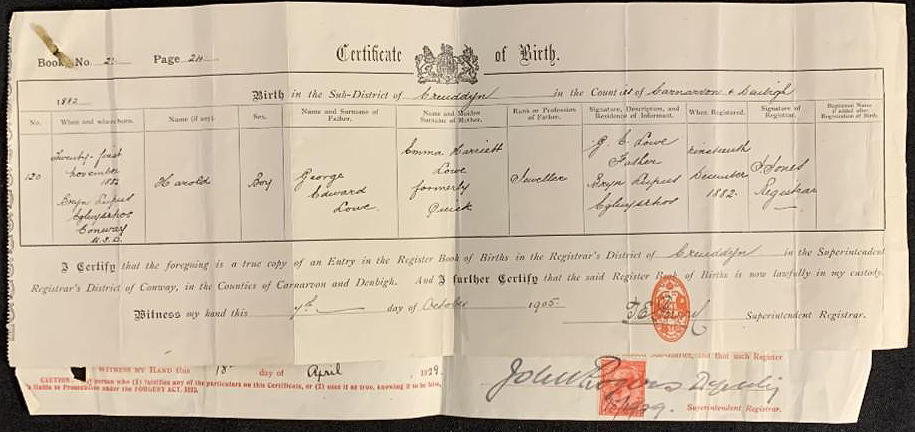 Book No. 2 Page 24
Certificate of Birth.
1882 Birth in the Sub-District of Creuddyn in the Counties of Carnarvon & Denbigh
No. When and where born. Name (if any). Sex. Name and Surname of Father. Name and Maiden Surname of Mother. Rank or Profession of Father. Signature, Description, and Residence of Informant. When Registered. Signature of Registrar. Baptismal Name if added after Registration of Birth.
120 Twenty-first November 1882 Bryn Lupus Eglwysrhos Conway U.S.D. Harold Boy George Edward Lowe Emma Harriett Lowe formerly Quick Jeweller G. E. Lowe Father Bryn Lupus Eglwysrhos Nineteenth December 1882. Jones Registrar
I Certify that the foregoing is a true copy of an Entry in the Register Book of Births in the Registrar's District of Creuddyn in the Superintendent
Registrar's District of Conway, in the Counties of Carnarvon and Denbigh. And I further Certify that the said Register Book of Births is now lawfully in my custody.
Witness my hand this 7th day of October 1905.
Superintendent Registrar.
and that such Register
WITNESS MY HAND this 18 day of April, 1929.
CAUTION. Any person who (1) falsifies any of the particulars on this Certificate, or (2) uses it as true, knowing it to be false,
is liable to Prosecution under the FORGERY ACT, 1913.
John Rogers Deputy
Superintendent Registrar.